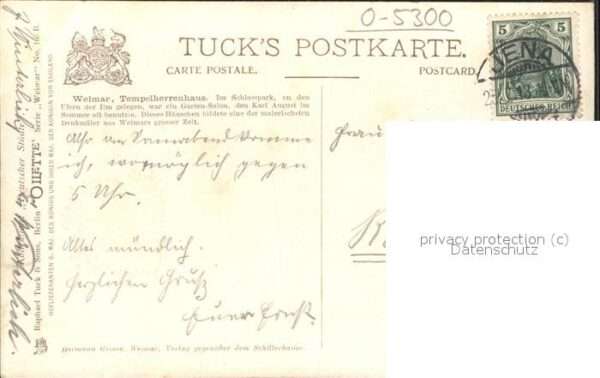 O-5300
TUCK'S POSTKARTE.
CARTE POSTALE.
POSTCARD
5 5
JENA
DEUTSCHES REICH
Weimar, Tempelherrenhaus. Im Schlosspark, an den
Ufern der Ilm gelegen, war ein Garten-Salon, den Karl August im
Sommer oft benutzte. Dieses Häuschen bildete eins der malerischsten
Denkmäler aus Weimars grosser Zeit.
Also am Sonnabend komme
ich, womöglich gegen
5 Uhr.
Alles mündlich.
Herzlichen Gruß
Euer Ernst.
Frau
privacy protection (c)
Datenschutz
Raphael Tuck & Sons, Berlin
"OILETTE" Serie "Weimar" No.
HOFLIEFERANTEN S. MAJ. DES KÖNIGS UND IHRER MAJ. DER KÖNIGIN VON ENGLAND.
Weimar, Verlag gegenüber dem Schillerhause.